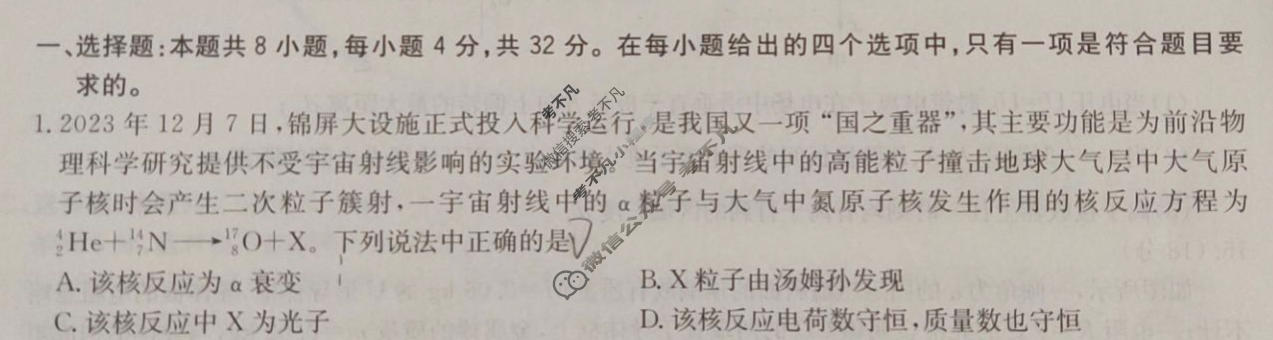 一、选择题:本题共 8 小题,每小题 4 分,共 32 分。在每小题给出的四个选项中,只有一项是符合题目要
求的。
1. 2023 年 12 月 7 日,锦屏大设施正式投入科学运行,是我国又一项“国之重器”,其主要功能是为前沿物
理科学研究提供不受宇宙射线影响的实验环境。当宇宙射线中的高能粒子撞击地球大气层中大气原
子核时会产生二次粒子簇射,一宇宙射线中的 α 粒子与大气中氮原子核发生作用的核反应方程为
⁴₂He+¹⁴₇N→¹⁷₈O+X。下列说法中正确的是
A. 该核反应为 α 衰变
B. X 粒子由汤姆孙发现
C. 该核反应中 X 为光子
D. 该核反应电荷数守恒,质量数也守恒
微信搜索小程序 考不凡
微信公众号 考不凡